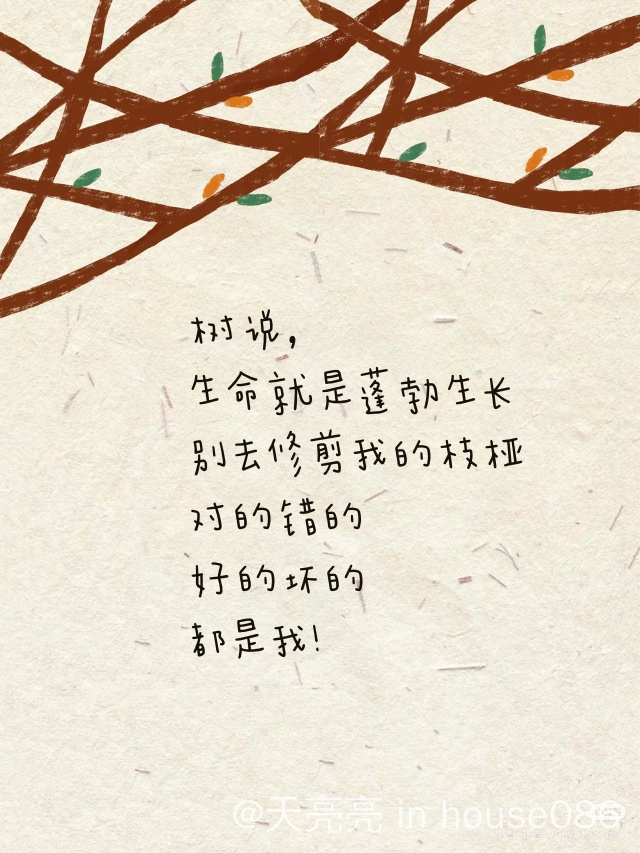 树说，
生命就是蓬勃生长
别去修剪我的枝桠
对的错的
好的坏的
都是我！
@天亮亮 in house086